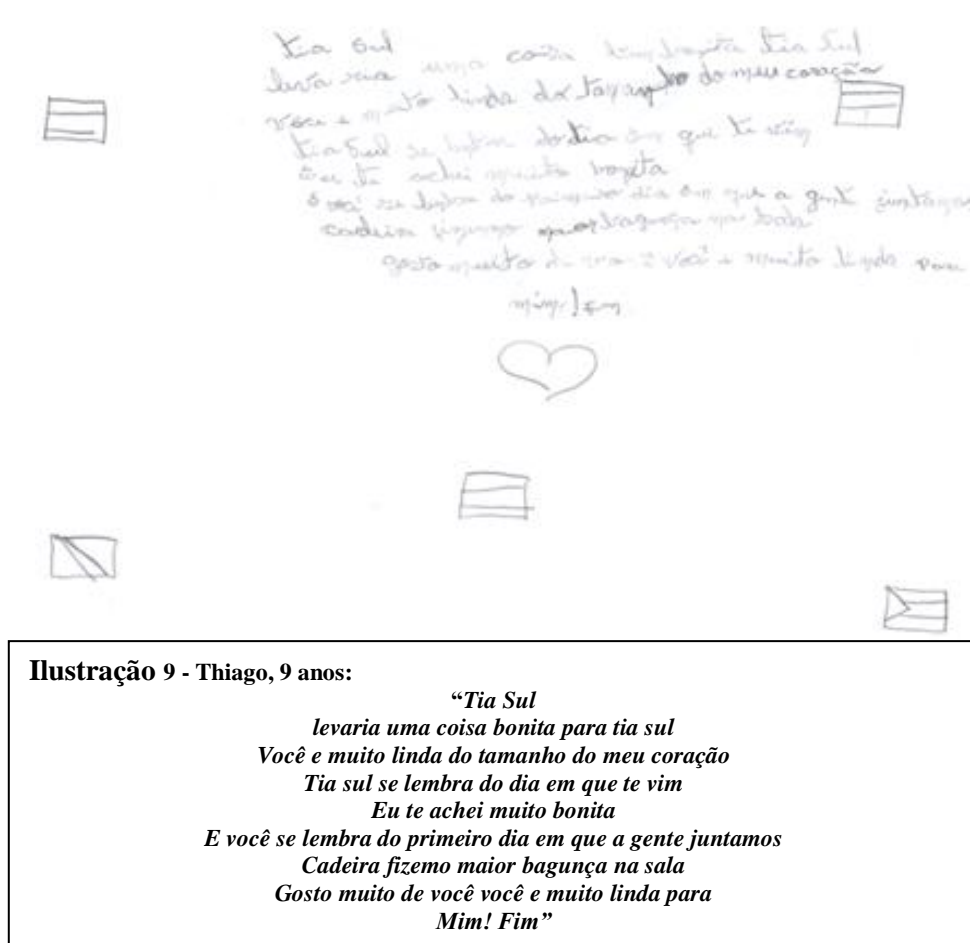 tia Sul
uma coisa tia Sul
muito linda do tamanho do meu coração
tia Sul se do dia em que te vim
eu te achei muito bonita
do primeiro dia em que a gente
cadeira bagunça na sala
gosto muito de você muito linda para
mim! Fim
Ilustração 9 - Thiago, 9 anos:
“Tia Sul
levaria uma coisa bonita para tia sul
Você e muito linda do tamanho do meu coração
Tia sul se lembra do dia em que te vim
Eu te achei muito bonita
E você se lembra do primeiro dia em que a gente juntamos
Cadeira fizemo maior bagunça na sala
Gosto muito de você você e muito linda para
Mim! Fim”